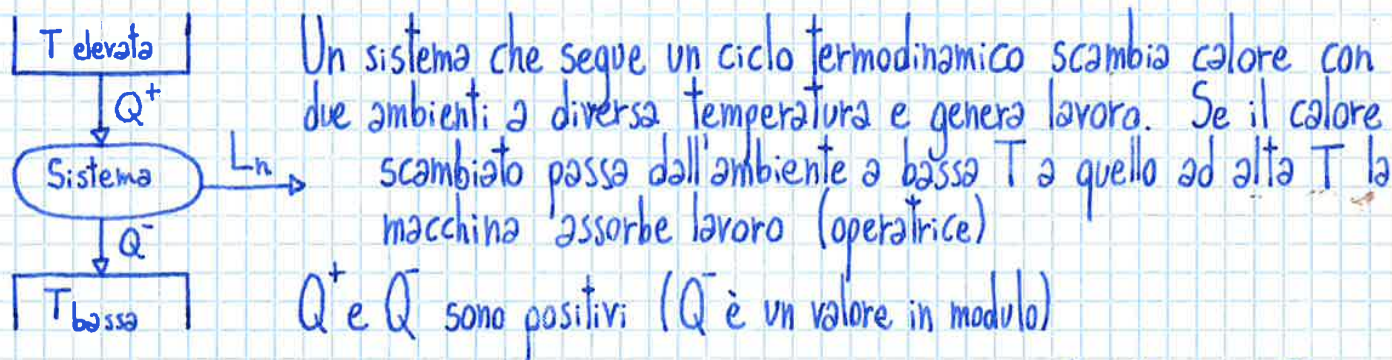 T elevata
Q⁺
Sistema
Lₙ
Q⁻
T bassa
Un sistema che segue un ciclo termodinamico scambia calore con
due ambienti a diversa temperatura e genera lavoro. Se il calore
scambiato passa dall'ambiente a bassa T a quello ad alta T la
macchina assorbe lavoro (operatrice)
Q⁺ e Q⁻ sono positivi (Q⁻ è un valore in modulo)